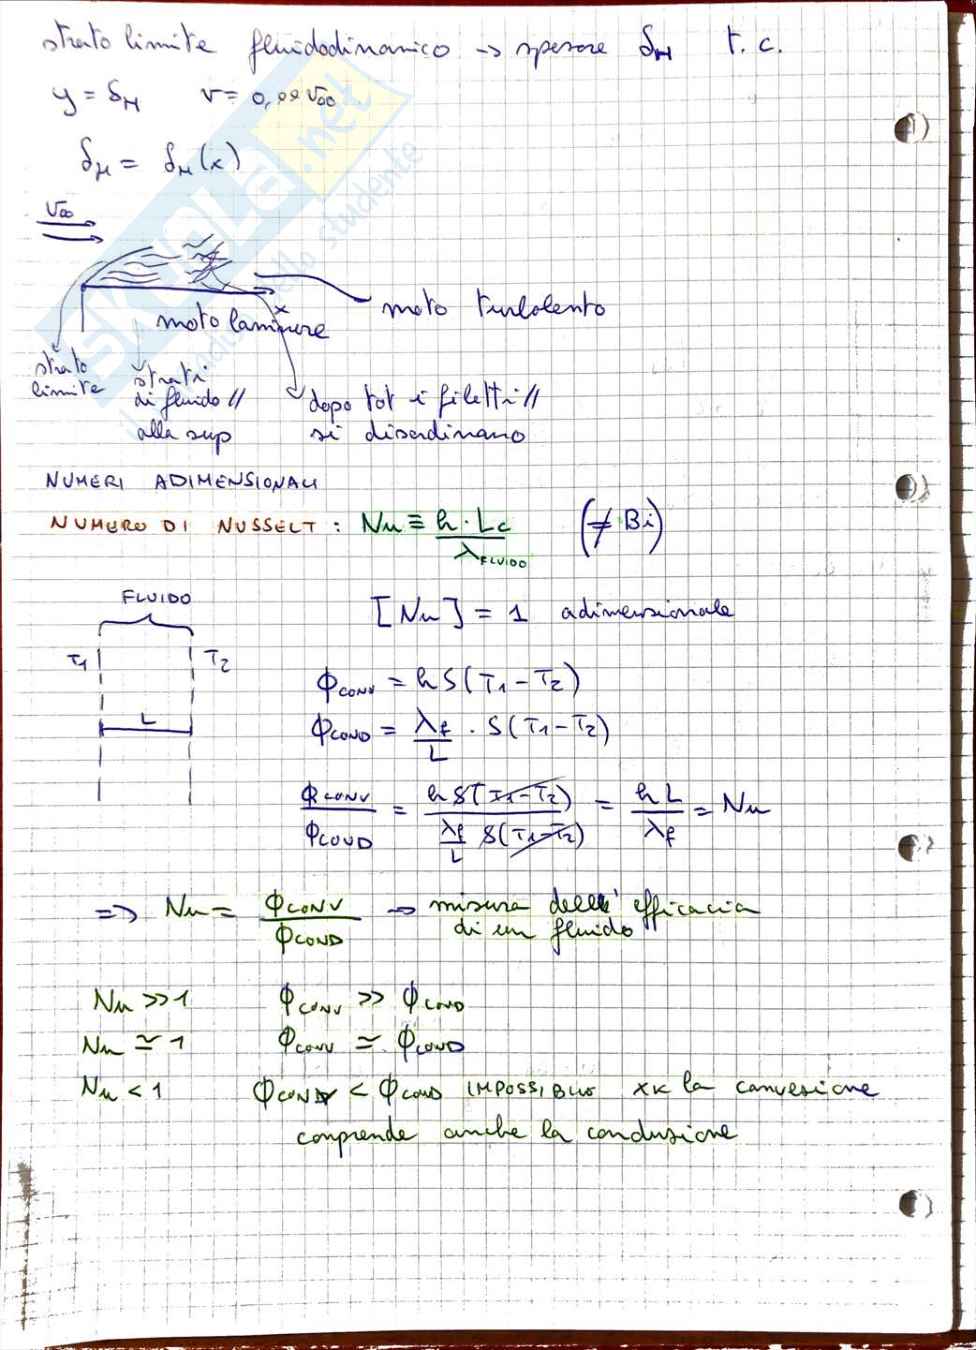 strato limite fluidodinamico → spessore δM t.c.
y = δM v = 0,99 v∞
δM = δM(x)
v∞
x
moto turbolento
moto laminare
strato limite
strati di fluido // alla sup
dopo tot i filetti // si disordinano
NUMERI ADIMENSIONALI
NUMERO DI NUSSELT : Nu ≡ h · Lc / λFLUIDO (≠ Bi)
FLUIDO
[Nu] = 1 adimensionale
T1 T2
L
ΦCONV = h S (T1 - T2)
ΦCOND = λf / L · S (T1 - T2)
ΦCONV / ΦCOND = h S (T1 - T2) / (λf / L S (T1 - T2)) = h L / λf = Nu
=> Nu = ΦCONV / ΦCOND → misura dell'efficacia
di un fluido
Nu >> 1 ΦCONV >> ΦCOND
Nu ≃ 1 ΦCONV ≃ ΦCOND
Nu < 1 ΦCONV < ΦCOND IMPOSSIBILE xk la convezione
comprende anche la conduzione
SKUOLA.net